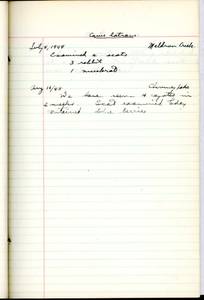 Canis latrans
July 4, 1948 Meldrum Creek
Examined 2 scats
3 rabbit
1 muskrat
Aug 18/48 Chimney Lake
We have seen 4 coyotes in
2 weeks. Scat examined today
contained berries